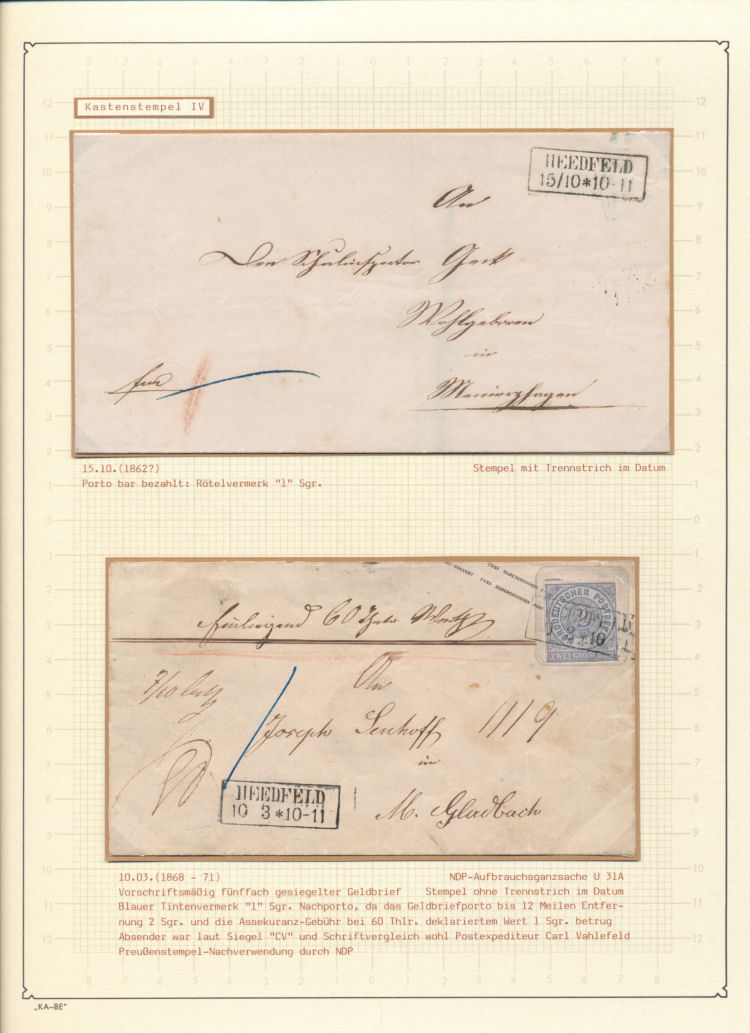 Kastenstempel IV
HEEDFELD
15/10*10-11
An
Den Schulinspector Geck
Wohlgeboren
in
15.10.(1862?)
Stempel mit Trennstrich im Datum
Porto bar bezahlt: Rötelvermerk "1" Sgr.
60 Thlr.
NORDDEUTSCHER POSTBEZIRK
ZWEI GROSCHEN
An
Joseph Lenhoff
in
M. Gladbach
HEEDFELD
10 3*10-11
10.03.(1868 - 71)
NDP-Aufbrauchsganzsache U 31A
Vorschriftsmäßig fünffach gesiegelter Geldbrief
Stempel ohne Trennstrich im Datum
Blauer Tintenvermerk "1" Sgr. Nachporto, da das Geldbriefporto bis 12 Meilen Entfer-
nung 2 Sgr. und die Assekuranz-Gebühr bei 60 Thlr. deklariertem Wert 1 Sgr. betrug
Absender war laut Siegel "CV" und Schriftvergleich wohl Postexpediteur Carl Vahlefeld
Preußenstempel-Nachverwendung durch NDP
„KA-BE"